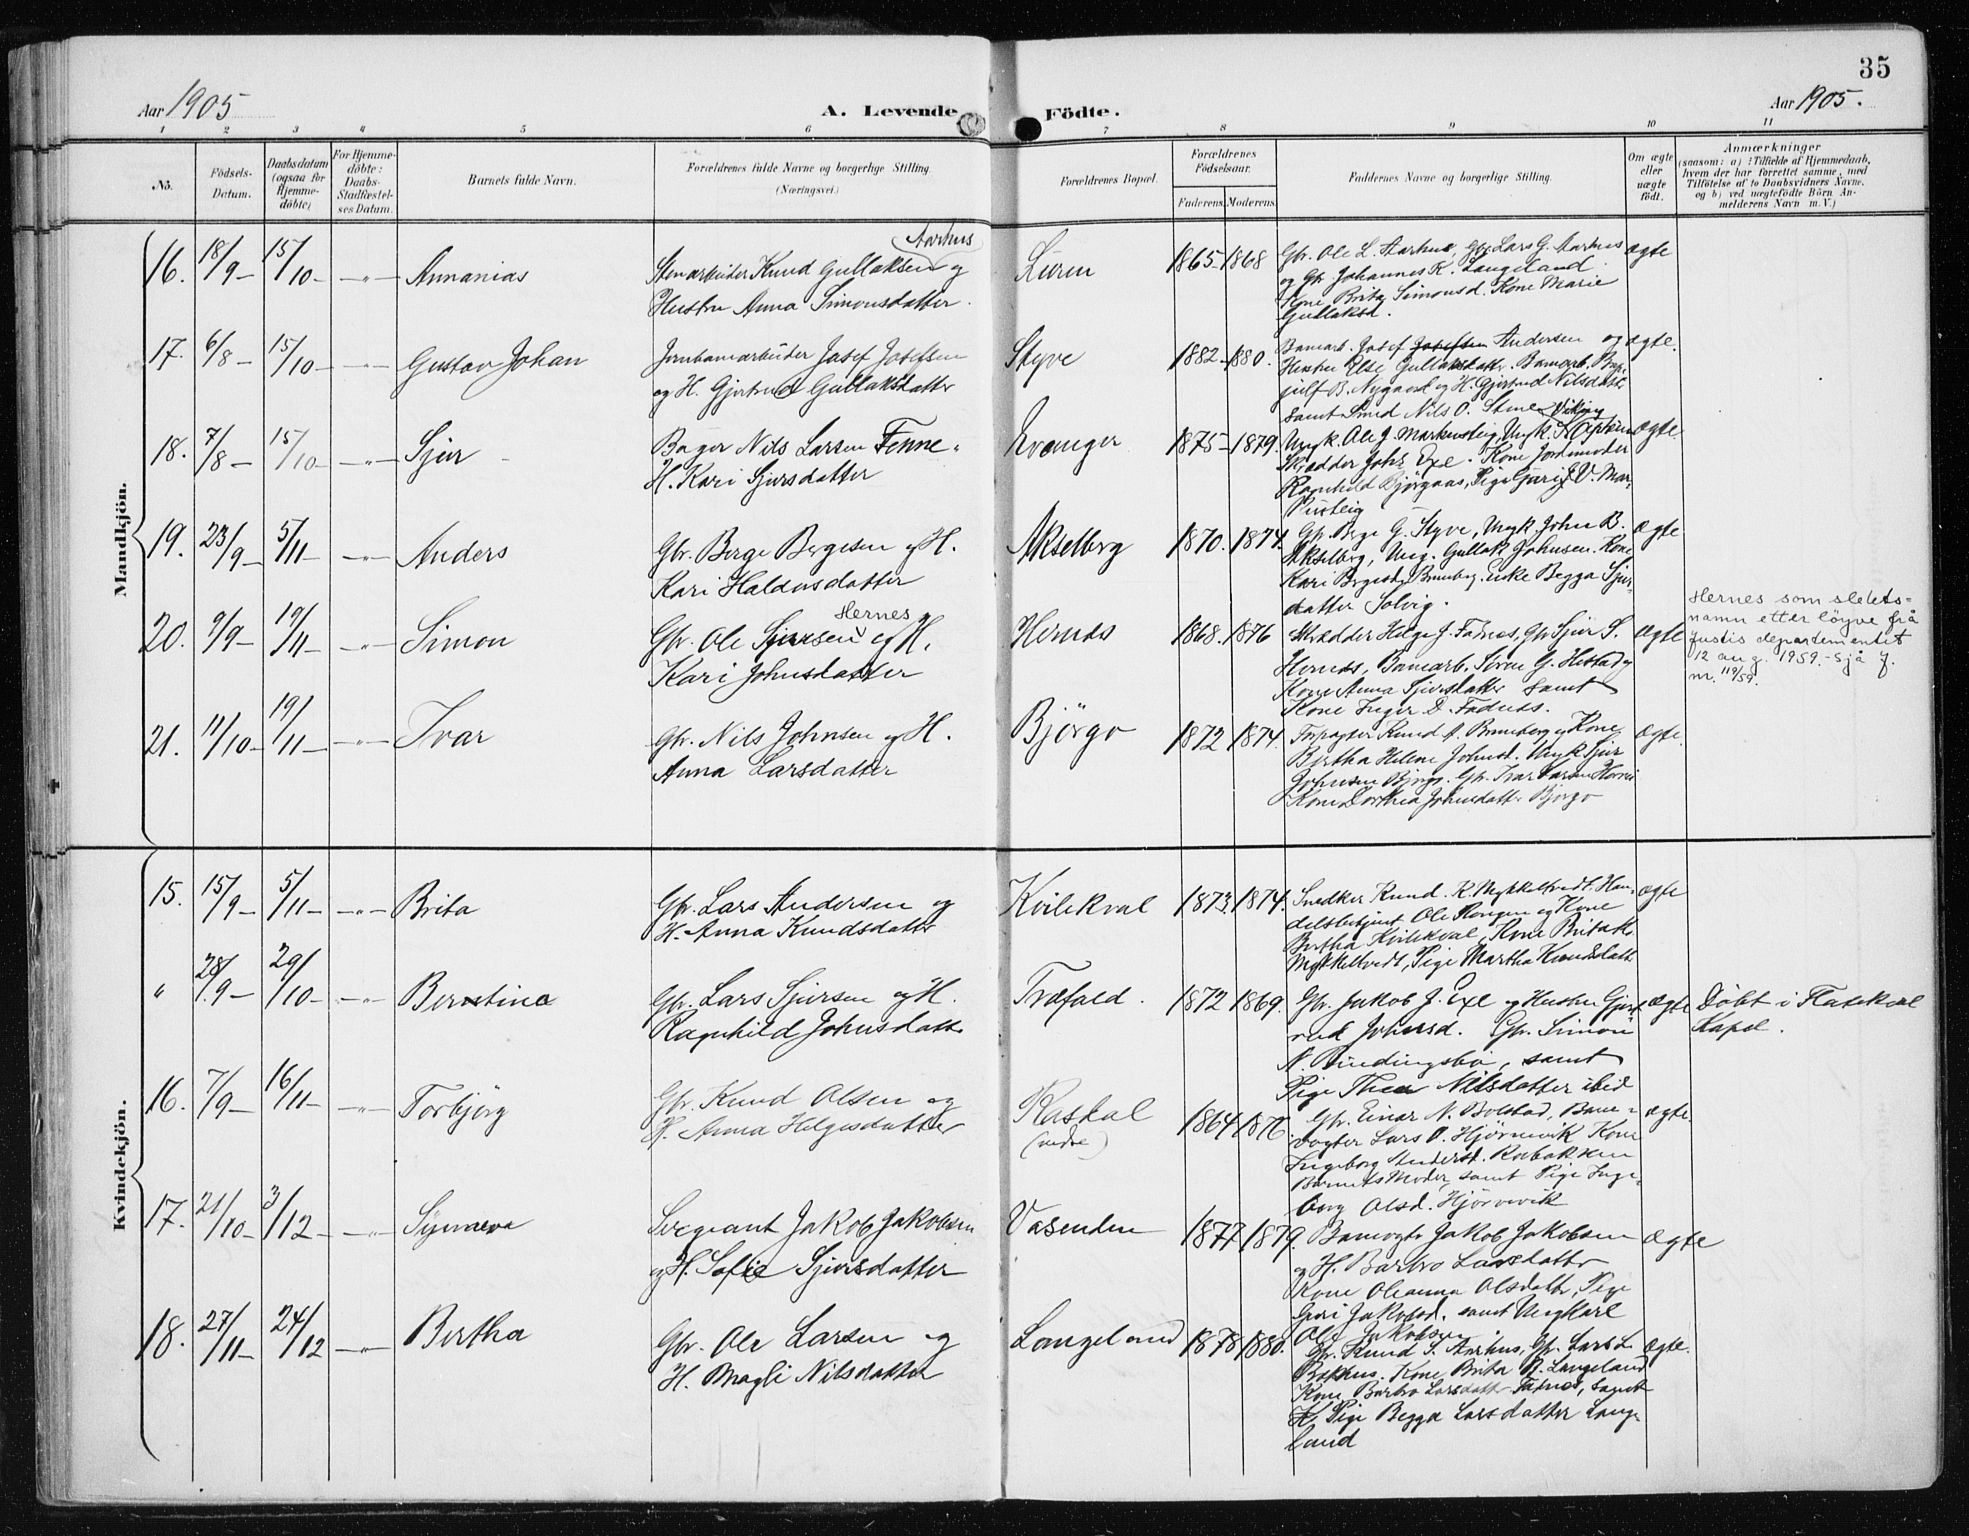 35
Aar 1905
A. Levende Födte.
Aar 1905.
1 2 3 4 5 6 7 8 9 10 11
No.
Födsels-Datum.
Daabsdatum (ogsaa for Hjemme-döbte)
For Hjemme-döbte: Daabs-Stadfæstel-ses Datum.
Barnets fulde Navn.
Forældrenes fulde Navne og borgerlige Stilling. (Næringsvei.)
Forældrenes Bopæl.
Forældrenes Födselsaar.
Faderens. Moderens.
Faddernes Navne og borgerlig Stilling.
Om ægte eller uægte födt.
Anmærkninger
(saasom: a) i Tilfælde af Hjemmedaab,
hvem der har forrettet samme, med
Tilföielse af to Daabsvidners Navne.
og b) ved uægtefödte Börn An-
melderens Navn m. V.)
Mandkjön.
16. 18/9- 15/10- -„- Annanias
Aarhus
Stenarbeider Knud Gullaksen og
Hustru Anna Simonsdatter.
Liren 1865- 1868
Gbr. Ole L. Aarhus, Gbr Lars G. Aarhus
og Gbr. Johannes K. Langeland.
Kone Brita Simonsd. Kone Marie
Gullaksd.
ægte
17. 6/8- 15/10- -„- Gustav Johan
Jernbanearbeider Josef Josefsen
og H. Gjertrud Gullaksdatter
Styve 1882- 1880.
Banearb. Josef Josefsen Andersen og
Hustru Else Gullaksdatter. Banearb. Bryn-
julf B. Nygaard og H. Gjertrud Nilsdatt.
samt Smed Nils O. Stine
ægte.
18. 7/8- 15/10- -„- Sjur
Bager Nils Larsen Fenne.
H. Kari Sjursdatter
Evanger 1875- 1879.
Viking
Ungk. Ole J. Markusteig, Ungk.
Skrædder Johs Exe. Kone Jordemoder
Ragnhild Björgaas, Pige Guri J. V. Mar-
kusteig
ægte
19. 23/9- 5/11- -„- Anders
Gbr. Berge Bergesen og H.
Kari Haldorsdatter
Akselberg 1870. 1874.
Gbr. Berge G. Styve, Ungk. John B.
Akselberg, Ung. Gullak Johnsen. Kone
Kari Bergesd. Brunborg. Enke Begga Sjur-
datter Solvig.
ægte
20. 9/9- 19/11- -„- Simon
Hernes
Gbr. Ole Sjursen og H.
Kari Johnsdatter
Hernes 1868. 1876
Skrædder Helge J. Fadnes, Gbr Sjur S.
Hernes, Banearb. Sören G. Hestad og
Kone Anna Sjursdatter samt
Kone Inger D. Fadnes.
ægte
Hernes som slekts=
namn etter löyve frå
justisdepartementet
12 aug. 1959.- Sjå J.
nr. 119/59.
21. 11/10- 19/11- -„- Ivar
Gbr. Nils Johnsen og H.
Anna Larsdatter
Björgo 1872 1874.
Forpagter Knud A. Brunborg og Kone
Bertha Helene Johnsd. Ungk Sjur
Johnsen Björgo. Gbr. Ivar Larsen Horvei
Kone Dorthea Johnsdatter Björgo
ægte.
Kvindekjön.
15. 15/9- 5/11- -„- Brita
Gbr. Lars Andersen og
H. Anna Knudsdatter
Kvilekval 1873. 1874.
Snedker Knud K. Mykkeltvedt. Han-
delsbetjent Ole Rongen og Kone
Bertha Kvilekval, Kone Brita K.
Mykkeltvedt, Pige Martha Knudsdatt
ægte
„ 28/9- 29/10- -„- Berntine
Gbr. Lars Sjursen og H.
Ragnhild Johnsdatte
Træfald. 1872 1869.
Gbr. Jakob J. Exe og Hustru Gjert-
rud Johnsd. Gbr. Simon
N. Bindingsbö, samt
Pige Thea Nilsdatter ibid
ægte
Döbt i Flatekval
Kapel.
16. 7/9- 16/11- -„- Torbjörg
Gbr. Knud Olsen og
H. Anna Helgesdatter
Raskal
(nedre) 1864 1876.
Gbr. Einar N. Bolstad, Bane-
vogter Lars O. Hjörnevik Kone
Ingeborg Andersd. Rabakken
Barnets Moder, samt Pige Inge-
borg Olsd. Hjörnevik
ægte.
17. 21/10- 3/12- -„- Synneva
Sergeant Jakob Jakobsen
og H. Sofie Sjursdatter
Vasenden 1877. 1879.
Banevogter Jakob Jakobsen
og H. Barbro Larsdatter
Kone Oleanna Olsdatter, Pige
Guri Jakobsd. samt Ungkarl
Ole Jakobsen
ægte
18. 27/11- 24/12 -„- Bertha
Gbr. Ole Larsen og
H. Magli Nilsdatter
Langeland 1878 1880.
Gbr. Knud S. Aarhus, Gbr. Lars L.
Bakhus. Kone Brita N. Langeland
Kone Barbro Larsdatter Fadnes, samt
Pige Begga Larsdatter Lange-
land
ægte.